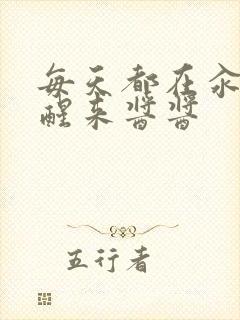 每天都在汆
醒来酱酱
五行者